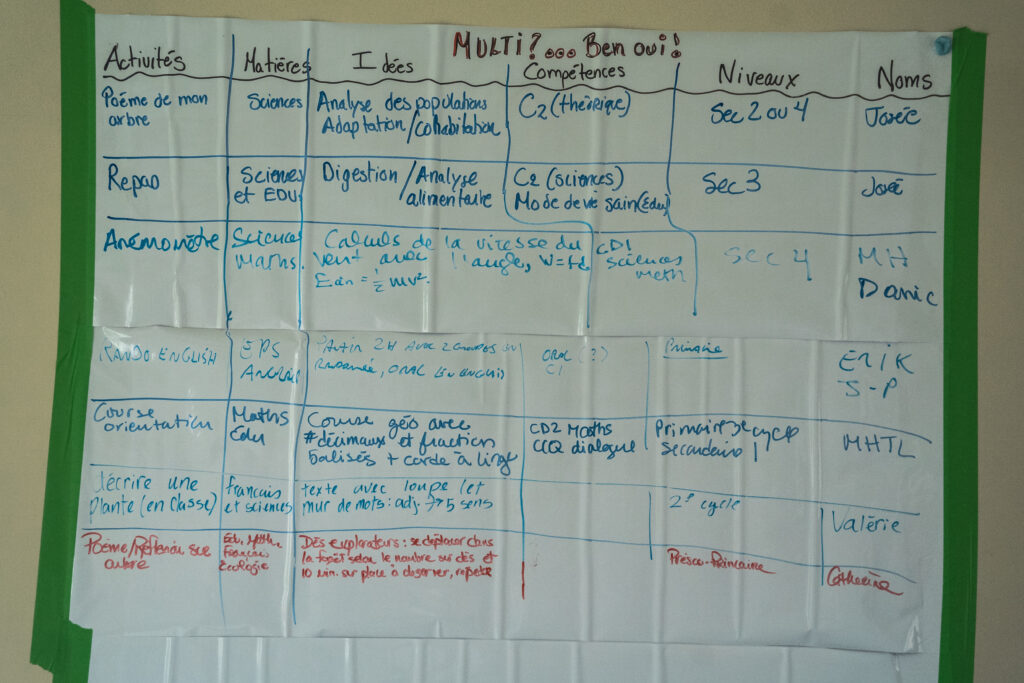 MULTI?... Ben oui!
Activités Matières Idées Compétences Niveaux Noms
Poème de mon
arbre
Sciences
Analyse des populations
Adaptation/cohabitation
C2 (théorique)
Sec 2 ou 4
Josée
Repas
Sciences
et EDU
Digestion/Analyse
alimentaire
C2 (sciences)
Mode de vie sain (Édu)
Sec 3
Josée
Anémomètre
Sciences
maths.
Calculs de la vitesse du
vent avec l'angle, W=Fd
Ecin = ½ mv².
CD1
sciences
math
Sec 4
MH
Danic
RANDO ENGLISH
EPS
Anglais
PARTIR 2H AVEC 2 GROUPES EN
RANDONNÉE, ORAL EN ENGLISH
ORAL (?)
C1
Primaire
ERIK
J-P
Course
orientation
Maths
Édu
Course géo avec
#décimaux et fraction
balisés + corde à linge
CD2 Maths
CCQ dialogue
Primaire 3e cycle
secondaire 1
MHTL
Décrire une
plante (en classe)
français
et sciences
texte avec loupe (et
mur de mots: adj. → 5 sens
2e cycle
Valérie
Poème/Réflexion sur
arbre
Édu, Math,
Français
Écologie
DÉS explorateurs: se déplacer dans
la forêt selon le nombre sur dés et
10 min. sur place à observer, répéter
Présco-Primaire
Catherine